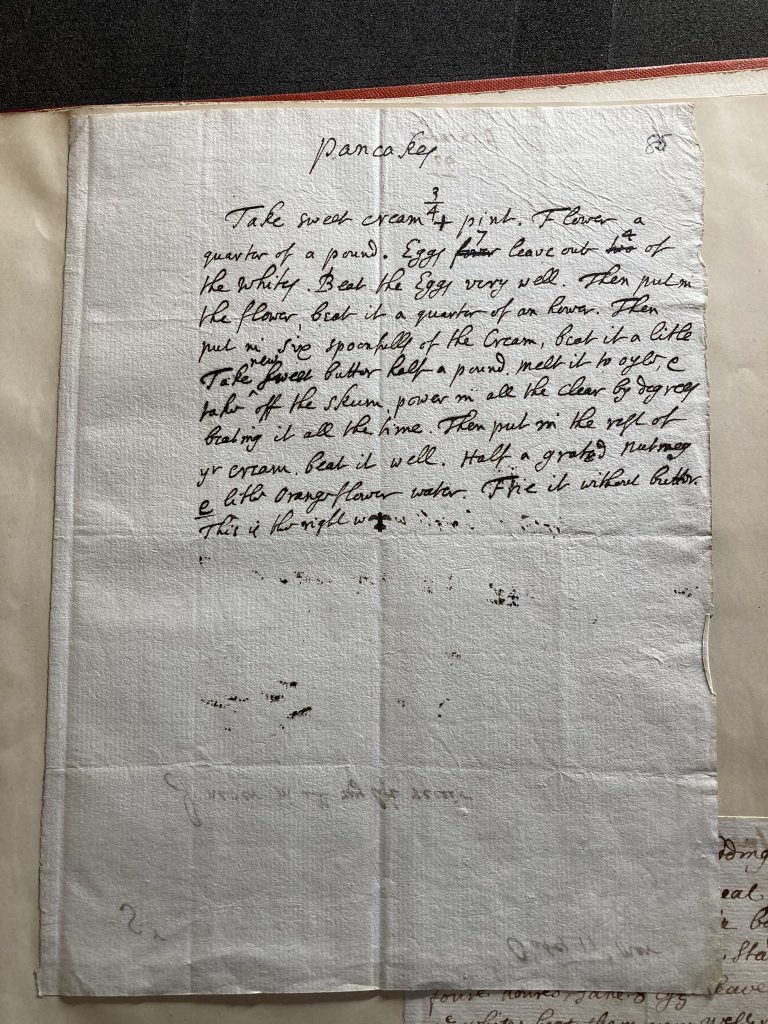 Pancakes
85
Take sweet cream 3/4 pint. Flower a
quarter of a pound. Eggs four 7 leave out two 4 of
the whites. Beat the Eggs very well. Then put in
the flower, beat it a quarter of an hower. Then
put in six spoonfulls of the Cream, beat it a litle
Take new sweet butter half a pound melt it to oyle, &
take off the skum, power in all the clear by degrees
beating it all the time. Then put in the rest of
yr cream. beat it well. Half a grated nutmeg
& litle Orangeflower water. Frie it without butter.
This is the right way